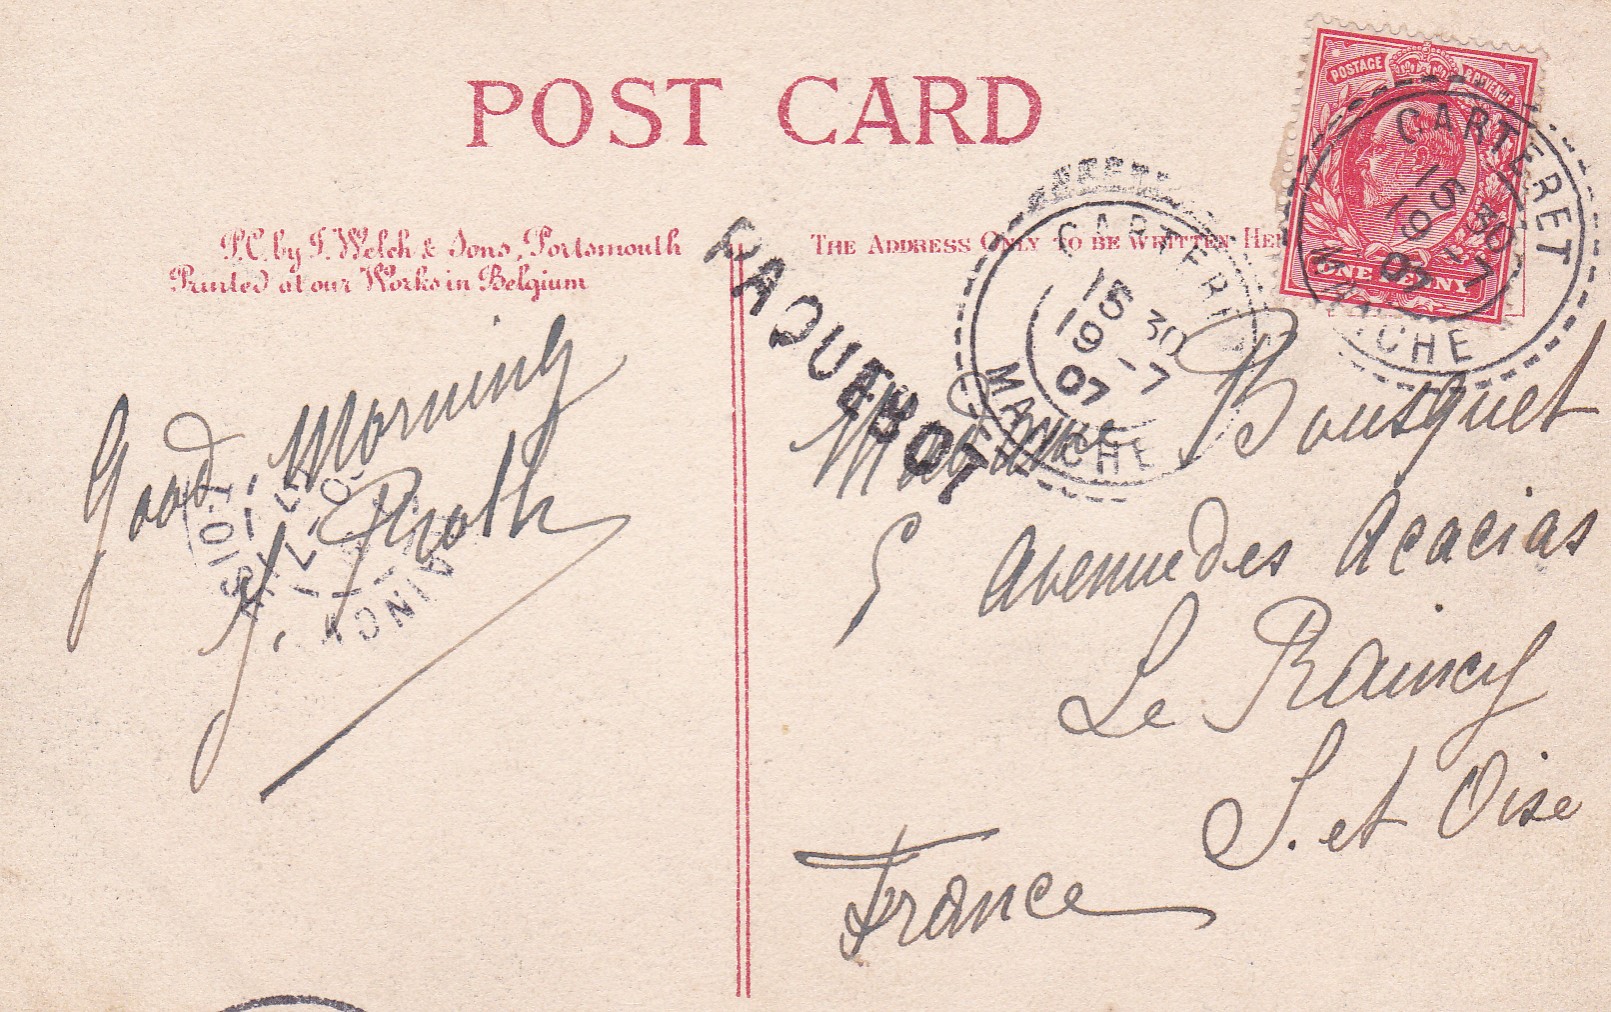 POST CARD
P.C. by J. Welch & Sons, Portsmouth
Printed at our Works in Belgium
THE ADDRESS ONLY TO BE WRITTEN HE
POSTAGE & REVENUE
ONE PENNY
CARTERET
15 30
19 -7
07
MANCHE
CARTERET
15 30
19 -7
07
MANCHE
PAQUEBOT
Good Morning
Madame Bousquet
5 Avenue des Acacias
Le Raincy
S. et Oise
France